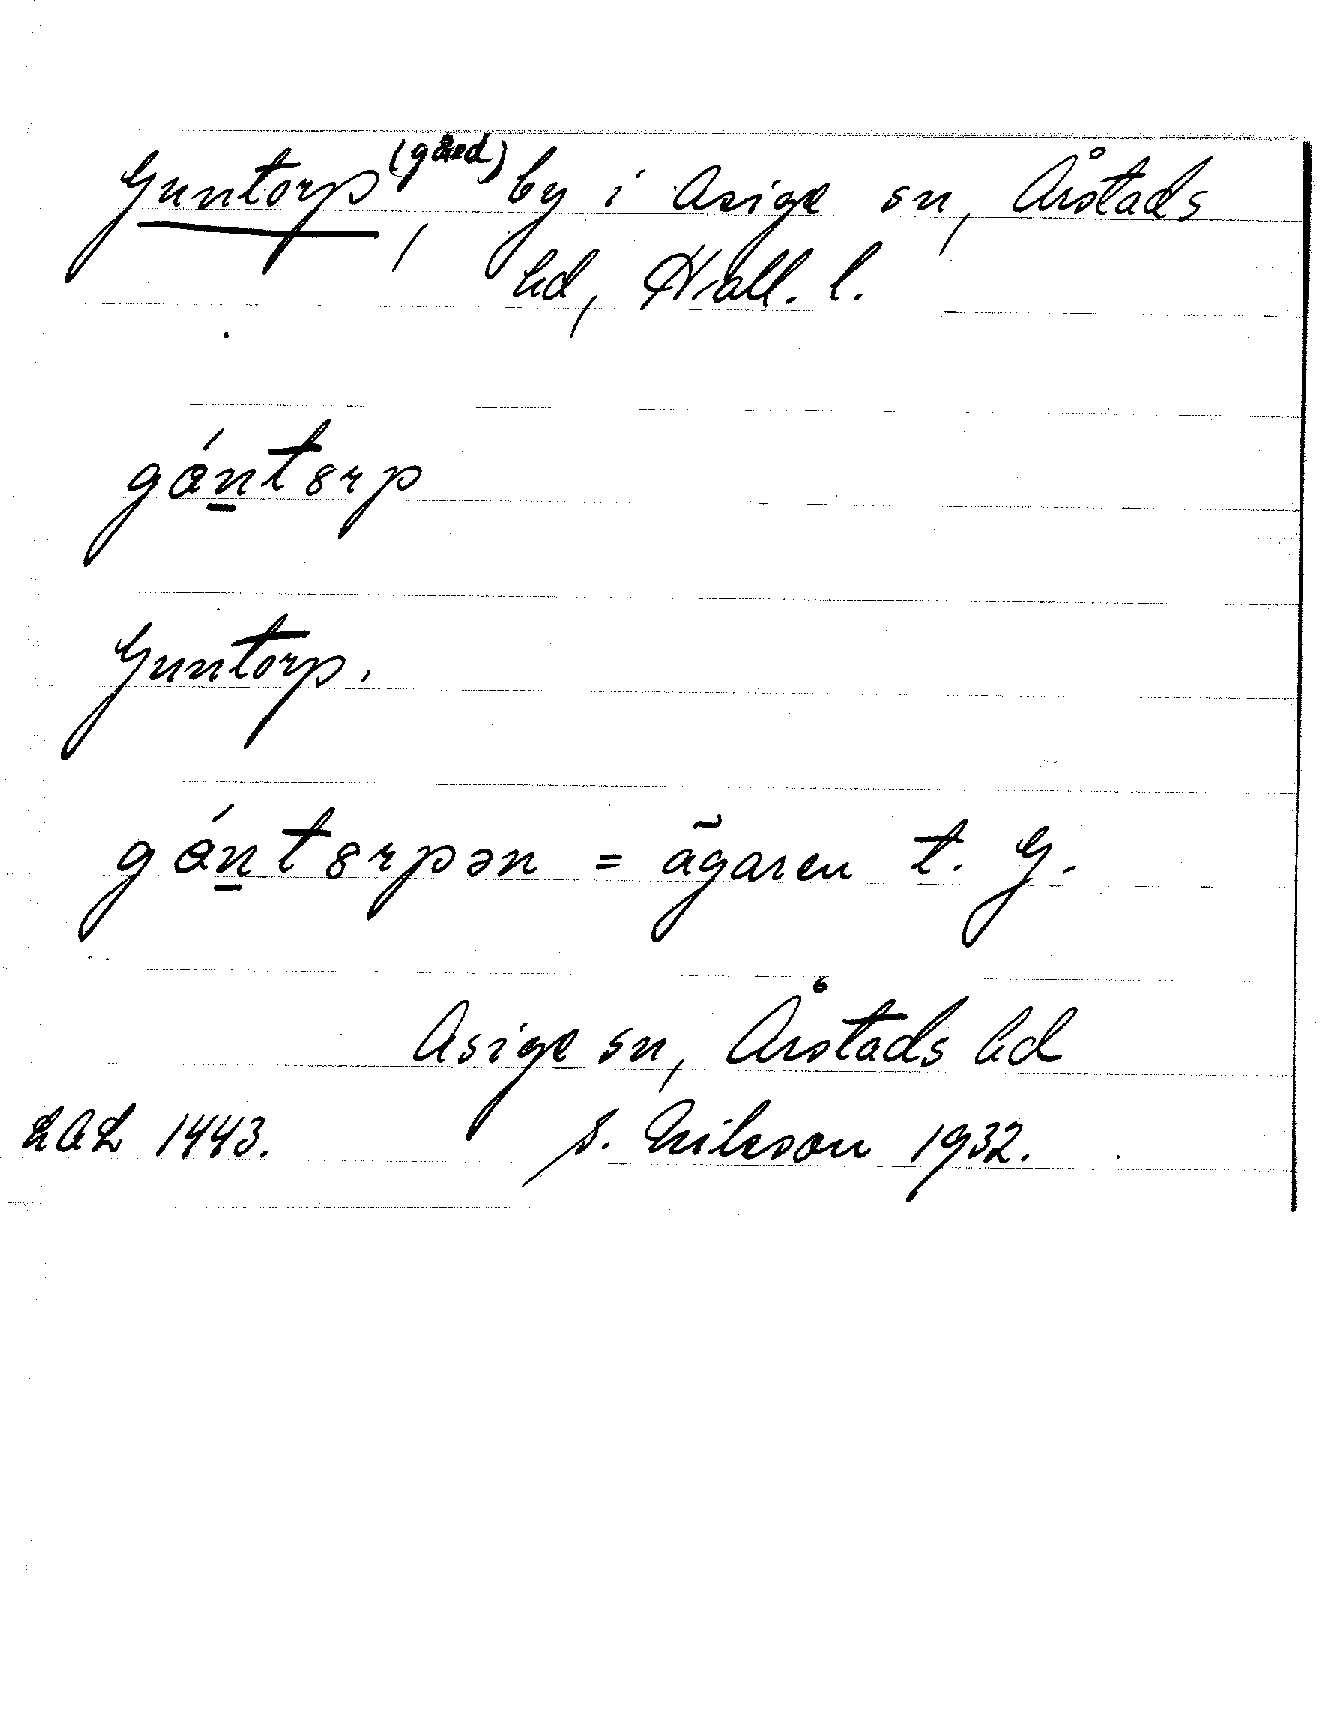 Guntorp, (gård) by i Asige sn, Årstads
hd, Hall. l.
gǿn̲t8rp
Guntorp.
gǿn̲t8rpən = ägaren t. G.
Asige sn, Årstads hd
LAL 1443. S. Nilsson 1932.